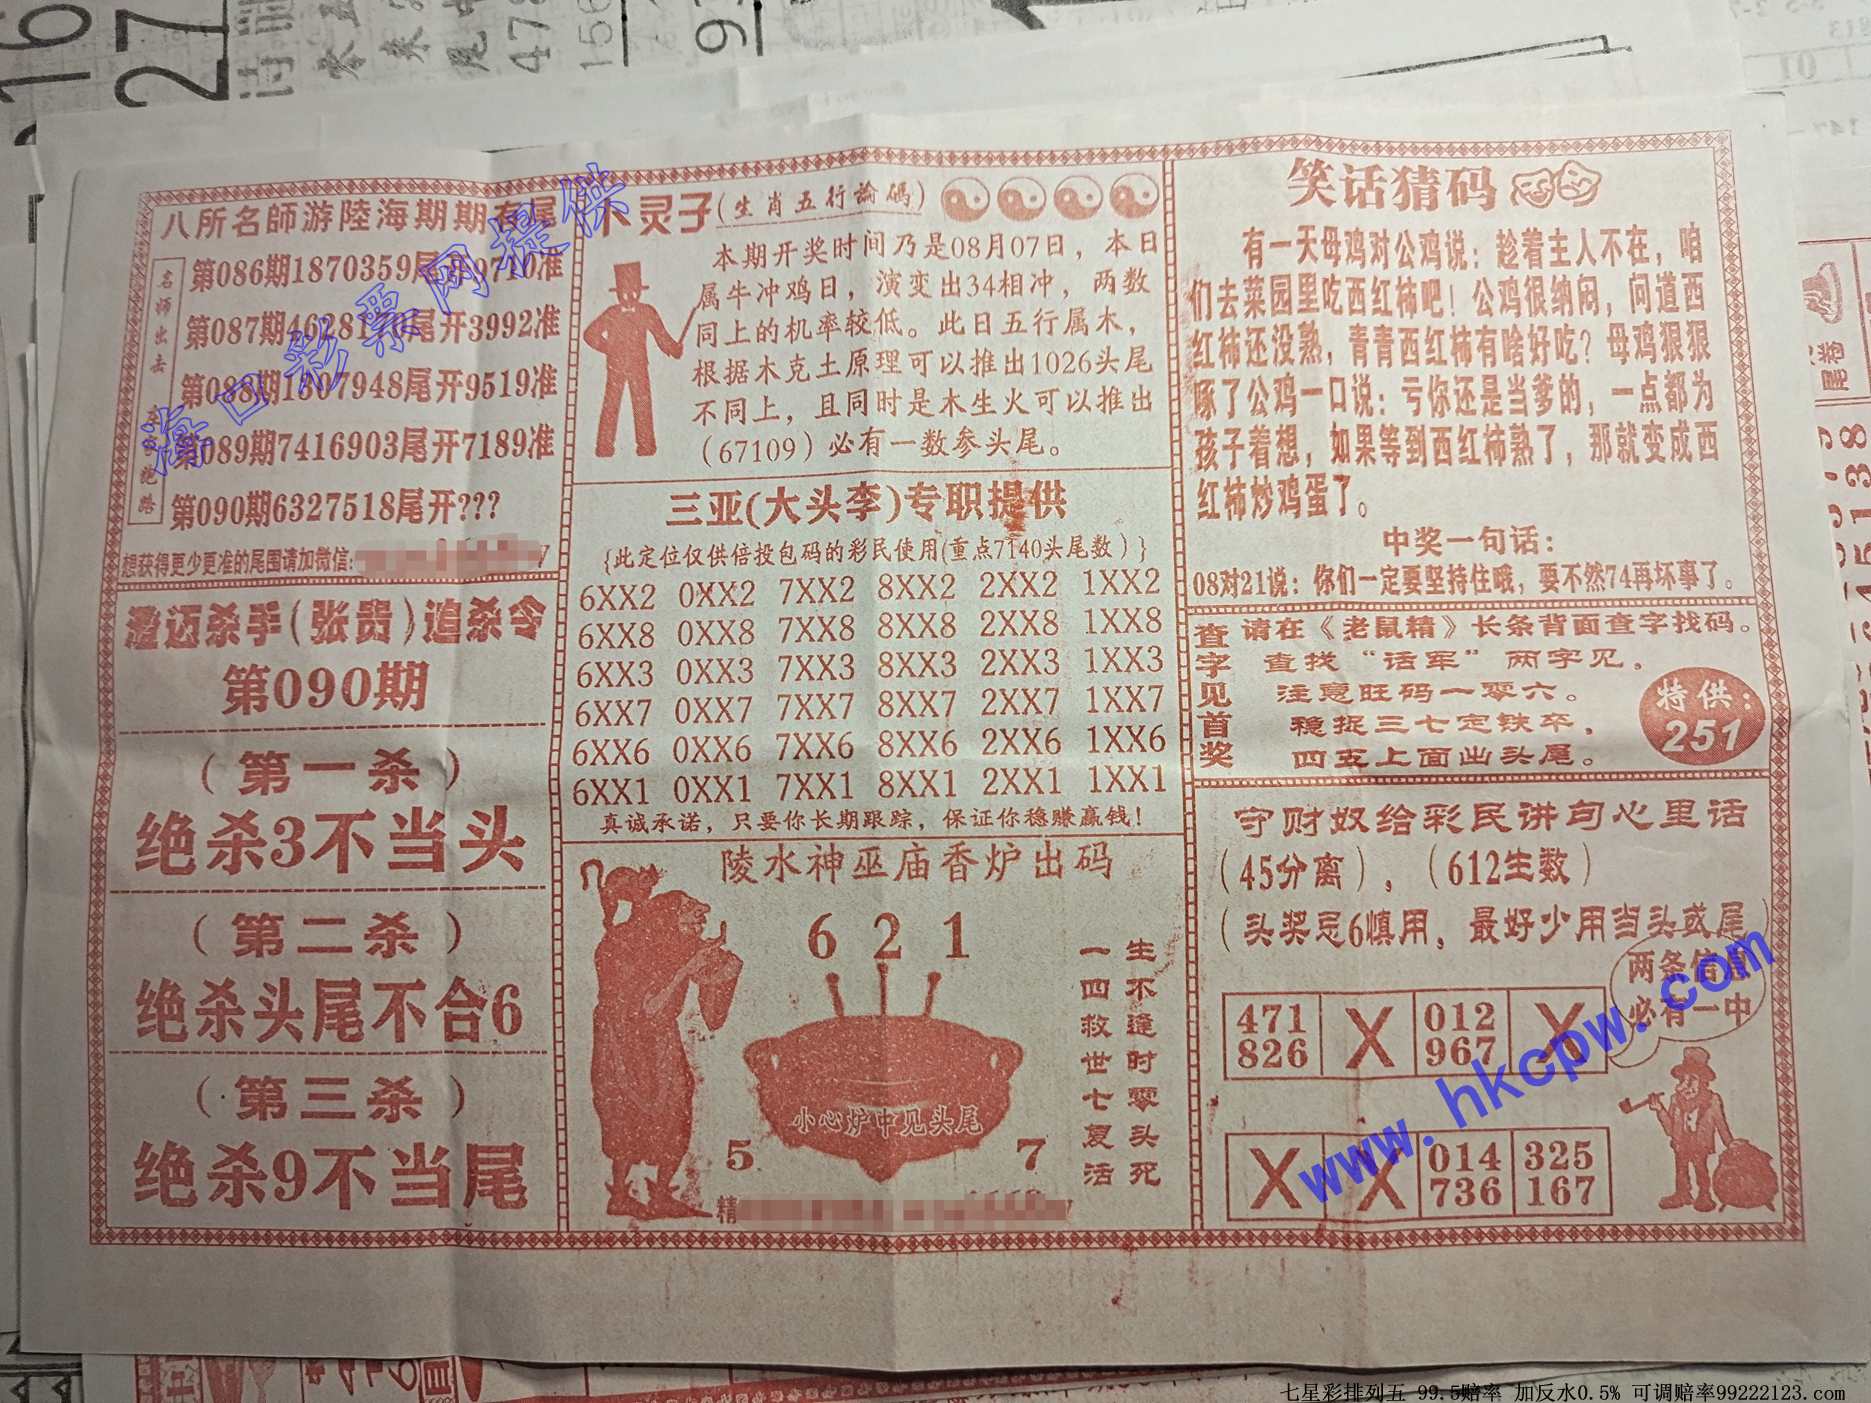 八所名師游陸海期期有尾
名师出去
第086期1870359尾开9710准
第088期1807948尾开9519准
第089期7416903尾开7189准
第090期6327518尾开???
想获得更少更准的尾围请加微信:
澄迈杀手(张贵)追杀令
第090期
(第一杀)
绝杀3不当头
(第二杀)
绝杀头尾不合6
(第三杀)
绝杀9不当尾
灵子(生肖五行論碼)
本期开奖时间乃是08月07日，本日
属牛冲鸡日，演变出34相冲，两数
同上的机率较低。此日五行属木，
根据木克土原理可以推出1026头尾
不同上，且同时是木生火可以推出
(67109)必有一数参头尾。
三亚(大头李)专职提供
{此定位仅供倍投包码的彩民使用(重点7140头尾数)}
6XX2 0XX2 7XX2 8XX2 2XX2 1XX2
6XX8 0XX8 7XX8 8XX8 2XX8 1XX8
6XX3 0XX3 7XX3 8XX3 2XX3 1XX3
6XX7 0XX7 7XX7 8XX7 2XX7 1XX7
6XX6 0XX6 7XX6 8XX6 2XX6 1XX6
6XX1 0XX1 7XX1 8XX1 2XX1 1XX1
真诚承诺，只要你长期跟踪，保证你稳赚赢钱!
陵水神巫庙香炉出码
6 2 1
小心炉中见头尾
5 7
生不逢时零头死
一四救世七复活
精
笑话猜码
有一天母鸡对公鸡说：趁着主人不在，咱
们去菜园里吃西红柿吧！公鸡很纳闷，问道西
红柿还没熟，青青西红柿有啥好吃？母鸡狠狠
啄了公鸡一口说：亏你还是当爹的，一点都为
孩子着想，如果等到西红柿熟了，那就变成西
红柿炒鸡蛋了。
中奖一句话：
08对21说：你们一定要坚持住哦，要不然74再坏事了。
查字见首奖
请在《老鼠精》长条背面查字找码。
查找“话军”两字见。
注意旺码一零六。
稳捉三七定铁卒，
四五上面出头尾。
特供：
251
守财奴给彩民讲句心里话
(45分离)，(612生数)
(头奖忌6慎用，最好少用当头或尾)
两条信息
必有一中
471 X 012 X
826 967
X X 014 325
736 167
海口彩票网提供
www.hkcpw.com
七星彩排列五 99.5赔率 加反水0.5% 可调赔率99222123.com